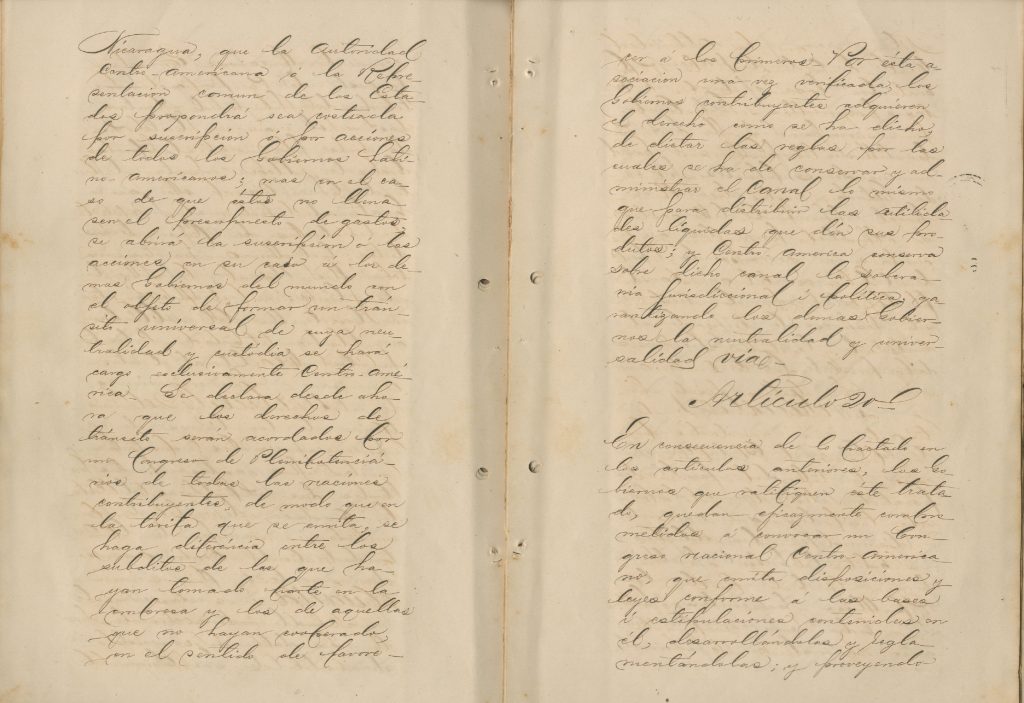 Nicaragua, que la autoridad
Centro-americana ó la Repre-
sentacion comun de los Esta-
dos propondrá sea costeada
por suscripcion ó por acciones
de todos los Gobiernos Lati-
no-americanos; mas en el ca-
so de que éstos no llena-
sen el presupuesto de gastos,
se abrirá la suscripción ó las
acciones en su caso á los de-
mas Gobiernos del mundo con
el objeto de formar un trán-
sito universal de cuya neu-
tralidad y custódia se hará
cargo esclusivamente Centro-Amé-
rica. Se declara desde aho-
ra que los derechos de
tránsito serán acordados por
un Congreso de Plenipotenciá-
rios de todas las naciones
contribuyentes, de modo que en
la tarifa que se emita, se
haga diferéncia entre los
subditos de las que ha-
yan tomado parte en la
empresa y los de aquellas
que no hayan cooperado,
en el sentido de favore-
cer á los primeros. Por ésta a-
sociacion una vez verificada, los
Gobiernos contribuyentes adquieren
el derecho como se ha dicho,
de dictar las reglas por las
cuales se ha de conservar y ad-
ministrar el Canal lo mismo
que para distribuir las utilida-
des líquidas que dén sus pro-
ductos; y Centro-America conserva
sobre dicho canal la sobera-
nía jurisdiccional i política, ga-
rantizando los demas Gobier-
nos la neutralidad y univer-
salidad
Artículo 20.
En consecuencia de lo tractado en
los artículos anteriores, los Go-
biernos que ratifiquen éste trata-
do, quedan eficazmente compro-
metidos á convocar un Con-
greso nacional Centro-america-
no, que emita disposiciones y
leyes conforme á las bases
i estipulaciones contenidas en
él, desarrollándolas y regla-
mentándolas; y proveyendo